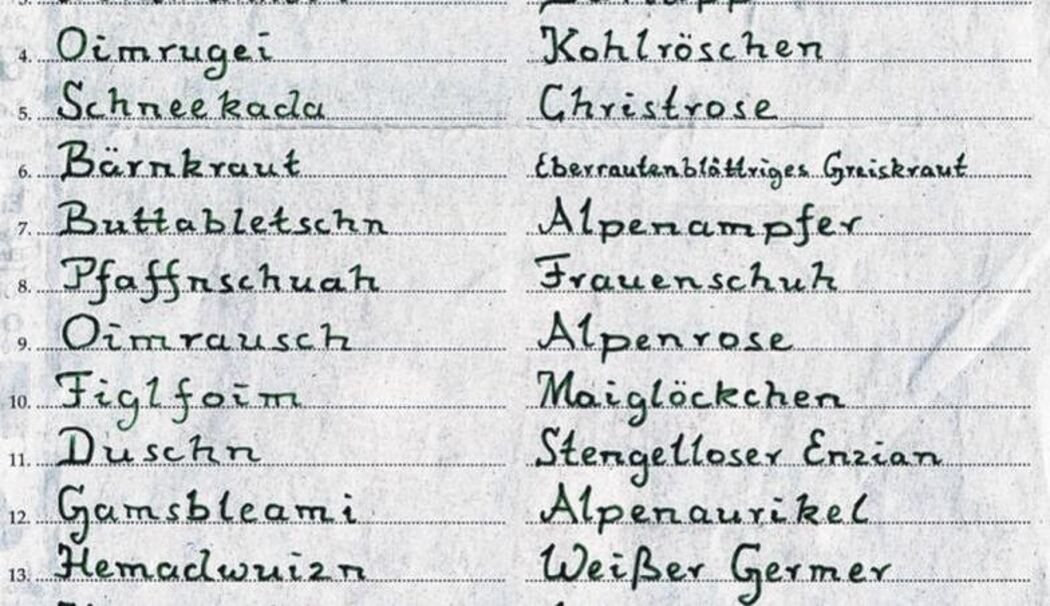 4. Oimrugei Kohlröschen
5. Schneekada Christrose
6. Bärnkraut Eberrautenblättriges Greiskraut
7. Buttabletschn Alpenampfer
8. Pfaffnschuah Frauenschuh
9. Oimrausch Alpenrose
10. Figlfoim Maiglöckchen
11. Duschn Stengelloser Enzian
12. Gamsbleami Alpenaurikel
13. Hemadwuizn Weißer Germer